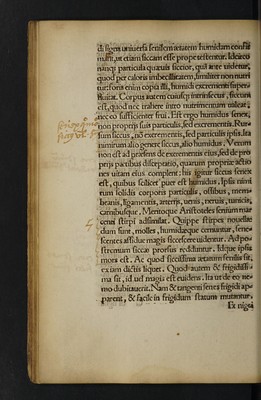 di senis universa senilem ætatem humidam consti
tuant, ut etiam siccam esse propter
nanqꝫ particula quævis siccior, quia
quod per caloris imbecillitatem, similiter non nutri
tur: foris enim copia illi, humidi excrementi super-
fluitat. Corpus autem cuiusqꝫ intrinsecus, siccum
est, quod nec trahere intro nutrimentum valeat,
nec eo sufficienter frui. Est ergo humidus senex,
non proprijs suis particulis, sed excrementis. Rur-
sum siccus, no excrementis, sed particulis ipsis. Ita
nimirum alio genere siccus, alio humidus. Verum
non est ad præsens de excrementis eius, sed de pro
prijs partibus disceptatio, quarum propriæ actio
nes vitam eius complent: his igitur siccus senex
est, quibus scilicet puer est humidus, ipsis nimi
rum solidis corporis particulis, ossibus, mem-
branis, ligamentis, arterijs, venis, nervis, tunicis,
carnibusque. Meritoque Aristoteles senium mar
centi stirpi adsimilat. Quippe stirpes novellæ
dum sunt, molles, humidæque cernuntur, sene-
scentes assiduè magis siccescere videntur. Ad po-
stremum siccæ prorsus redduntur. Idque ipsis
mors est. Ac quod siccissima ætatum senilis sit,
ex iam dictis liquet. Quod autem & frigidissi-
ma sit, id vel magis est evidens. Ita ut de eo ne-
mo dubitaverit. Nam & tangenti senes frigidi ap-
parent, & facile in frigidum statum mutantur.
Et nigri